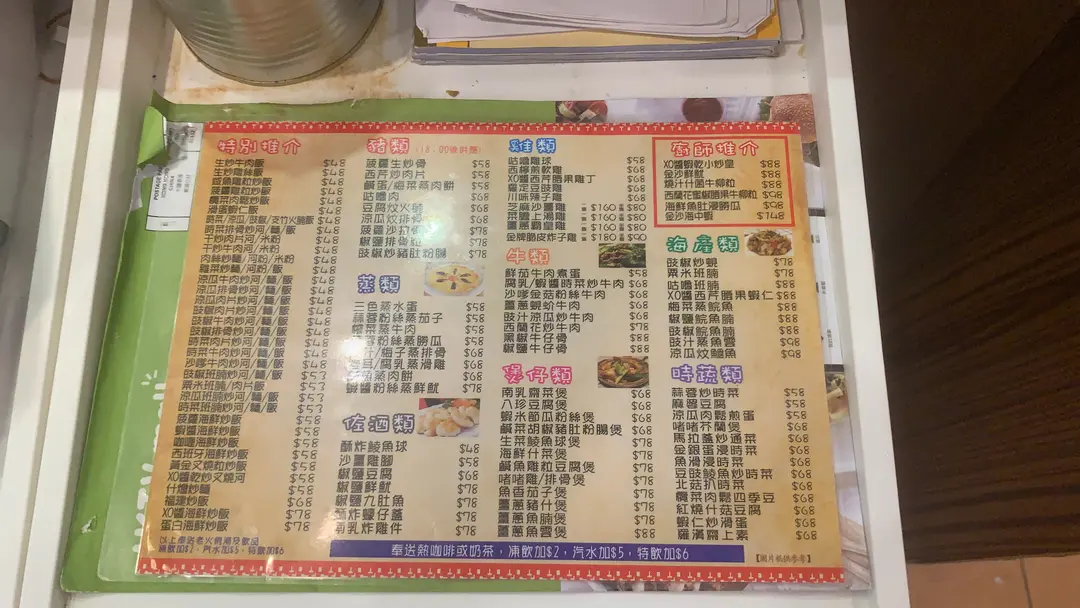 特別推介
生炒牛肉飯 $48
生炒雞絲飯 $48
鹹魚雞粒炒飯 $48
菠蘿雞粒炒飯 $48
欖菜肉鬆炒飯 $48
滑蛋蝦仁飯 $48
時菜排骨炒河/麵/飯 $48
干炒肉片河/米粉 $48
干炒牛肉河/米粉 $48
肉絲炒麵/河粉/米粉 $48
雞菜炒麵/河粉/飯 $48
涼瓜牛肉炒河/麵/飯 $48
涼瓜排骨炒河/麵/飯 $48
涼瓜肉片炒河/麵/飯 $48
豉椒肉片炒河/麵/飯 $48
豉椒牛肉炒河/麵/飯 $48
豉椒排骨炒河/麵/飯 $48
時菜肉片炒河/麵/飯 $48
時菜牛肉炒河/麵/飯 $48
沙嗲牛肉炒河/麵/飯 $48
豉椒班腩炒河/麵/飯
粟米班腩/肉片飯
時菜班腩炒河/麵/飯
菠蘿海鮮炒飯 $58
蝦醬海鮮炒飯 $58
咖喱海鮮炒飯 $58
西班牙海鮮炒飯 $58
黃金叉燒粒炒飯 $58
XO醬乾炒叉燒河 $58
什燴炒麵 $58
福建炒飯 $68
XO醬海鮮炒飯 $78
蛋白海鮮炒飯 $78
以上奉送老火例湯及飲品
凍飲加$2、汽水加$5，特飲加$6
豬類 (18:00後供應)
菠蘿生炒骨 $58
西芹炒肉片 $58
鹹蛋/梅菜蒸肉餅 $58
咕嚕肉 $68
豆腐炆火腩 $68
涼瓜炆排骨 $68
菠蘿沙拉骨 $78
椒鹽排骨 $78
豉椒炒豬肚粉腸 $68
蒸類
三色蒸水蛋 $58
蒜蓉粉絲蒸茄子 $58
欖菜蒸牛肉 $58
蓉粉絲蒸勝瓜 $58
汁/梅子蒸排骨 $68
耳/腐乳蒸滑雞 $68
魚蒸肉餅 $68
蝦醬粉絲蒸鮮魷 $78
佐酒類
酥炸鯪魚球 $48
沙薑雞腳 $58
椒鹽豆腐 $68
椒鹽鮮魷 $78
椒鹽九肚魚 $78
酥炸蠔仔 $78
南乳炸雞件 $78
雞類
咕嚕雞球 $58
西檸煎軟雞 $68
XO醬西芹腰果雞丁 $68
羅定豆豉雞 $68
川味辣子雞 $68
芝麻沙薑雞 一隻$160 半隻$80
菜膽上湯雞 一隻$160 半隻$80
薑蔥霸皇雞 一隻$160 半隻$80
金牌脆皮炸子雞 一隻$180 半隻$90
牛類
鮮茄牛肉煮蛋 $58
腐乳/蝦醬時菜炒牛肉 $58
沙嗲金菇粉絲牛肉 $68
薑蔥蜆蚧牛肉 $68
豉汁涼瓜炒牛肉 $68
西蘭花炒牛肉 $78
黑椒牛仔骨 $88
椒鹽牛仔骨 $88
煲仔類
南乳齋菜煲 $68
八珍豆腐煲 $68
蝦米節瓜粉絲煲 $68
鹹菜胡椒豬肚粉腸煲 $68
生菜鯪魚球煲 $78
海鮮什菜煲 $78
鹹魚雞粒豆腐煲 $78
啫啫雞/排骨煲 $78
魚香茄子煲 $78
薑蔥豬什煲 $78
薑蔥魚腩煲 $78
薑蔥魚雲煲 $88
廚師推介
XO醬蝦乾小炒皇 $88
金沙鮮魷 $88
燒汁什菌牛柳粒 $88
西蘭花蜜椒腰果牛柳粒 $98
海鮮魚肚浸勝瓜 $98
金沙海中蝦 $148
海產類
豉椒炒蜆 $78
粟米班腩 $78
咕嚕班腩 $78
XO醬西芹腰果蝦仁 $88
梅菜蒸鯇魚 $88
椒鹽鯇魚腩 $88
豉椒鯇魚腩 $88
豉汁蒸魚雲 $98
涼瓜炆鱠魚 $98
時蔬類
蒜蓉炒時菜 $58
麻婆豆腐 $58
涼瓜肉鬆煎蛋 $58
啫啫芥蘭煲 $68
馬拉盞炒通菜 $68
金銀蛋浸時菜 $68
魚滑浸時菜 $68
豆豉鯪魚炒時菜 $68
北菇扒時菜 $68
欖菜肉鬆四季豆 $68
紅燒什菇豆腐 $68
蝦仁炒滑蛋 $68
羅漢齋上素 $68
奉送熱咖啡或奶茶，凍飲加$2，汽水加$5，特飲加$6
【圖片祇供參考】